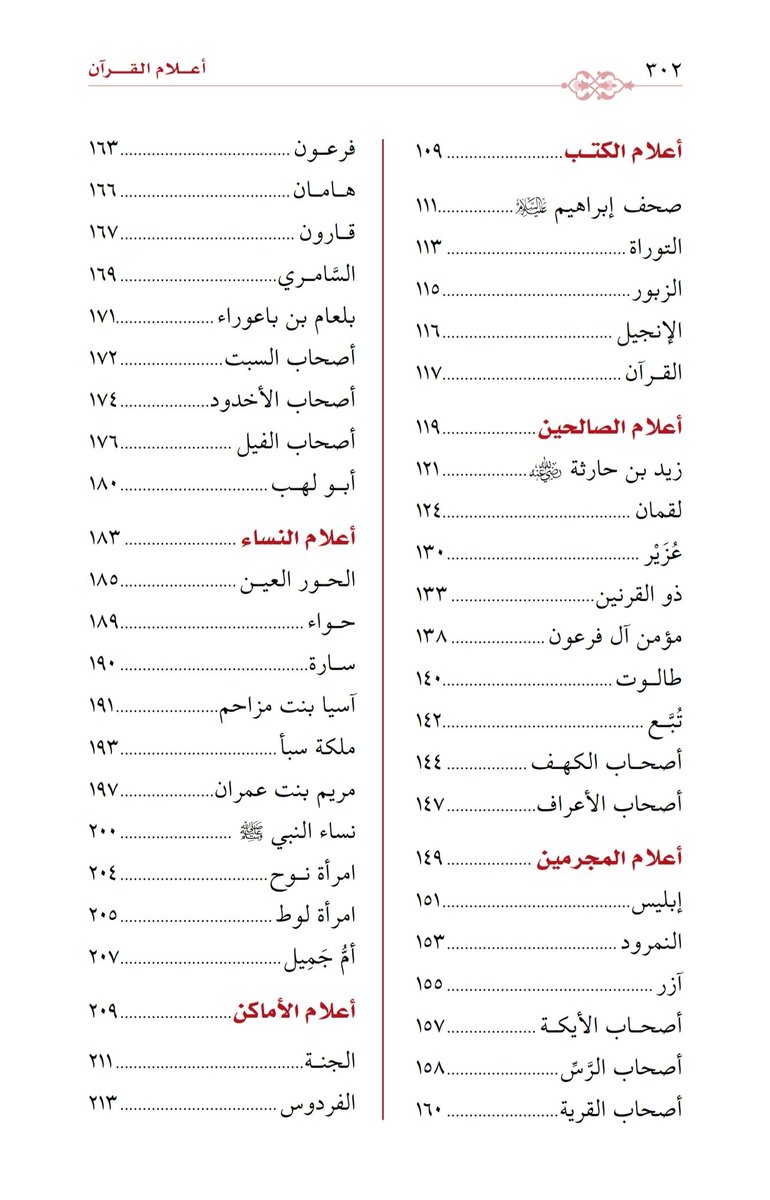 ٣٠٢
أعـلام القـرآن
أعلام الكتـب ............................ ١٠٩
صحف إبراهيم ﵇ ................... ١١١
التوراة ............................................. ١١٣
الزبور ............................................... ١١٥
الإنجيل ........................................... ١١٦
القـرآن ............................................. ١١٧
أعلام الصالحين ....................... ١١٩
زيد بن حارثة ﵁ ..................... ١٢١
لقمان ............................................... ١٢٤
عُزَيْر ................................................ ١٣٠
ذو القرنين ................................... ١٣٣
مؤمن آل فرعون ........................ ١٣٨
طالـوت ........................................... ١٤٠
تُبَّـع .................................................. ١٤٢
أصحـاب الكهـف .................... ١٤٤
أصحاب الأعراف ...................... ١٤٧
أعلام المجرمين ..................... ١٤٩
إبليس ............................................... ١٥١
النمرود ........................................... ١٥٣
آزر .................................................... ١٥٥
أصحـاب الأيكـة ...................... ١٥٧
أصحاب الرَّسِّ ............................ ١٥٨
أصحاب القرية ............................ ١٦٠
فرعـون ........................................... ١٦٣
هـامـان ............................................. ١٦٦
قـارون ............................................. ١٦٧
السَّامـري ....................................... ١٦٩
بلعام بن باعوراء ......................... ١٧١
أصحاب السبت .......................... ١٧٢
أصحاب الأخدود ...................... ١٧٤
أصحاب الفيل ............................ ١٧٦
أبـو لهـب ..................................... ١٨٠
أعلام النساء ............................ ١٨٣
الحـور العيـن ............................. ١٨٥
حـواء ............................................... ١٨٩
سـارة ................................................ ١٩٠
آسيا بنت مزاحم .......................... ١٩١
ملكة سبأ ....................................... ١٩٣
مريم بنت عمران ........................ ١٩٧
نساء النبي ﷺ ............................ ٢٠٠
امرأة نـوح ..................................... ٢٠٤
امرأة لوط ..................................... ٢٠٥
أمُّ جَمِيل ......................................... ٢٠٧
أعلام الأماكن ............................ ٢٠٩
الجنـة ............................................... ٢١١
الفردوس ....................................... ٢١٣